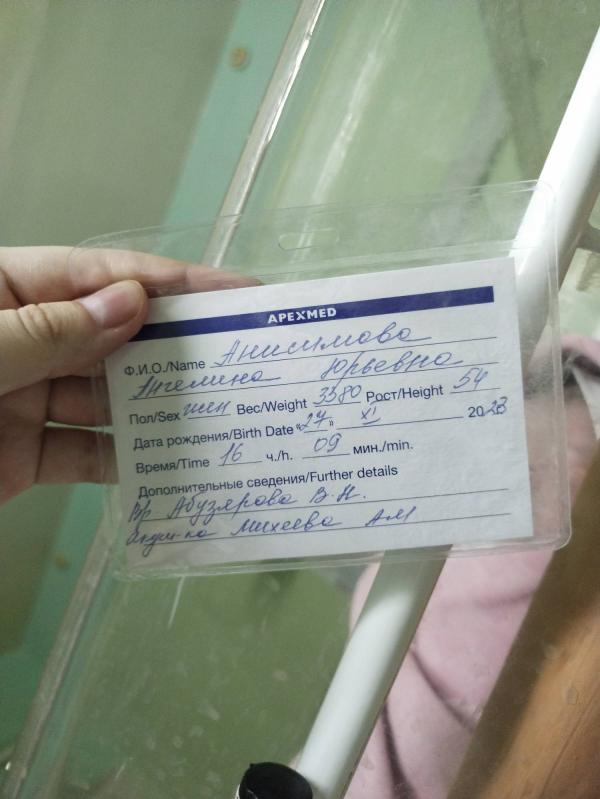 APEXMED
Ф.И.О./Name Анисимова
Ангелина Юрьевна
Пол/Sex жен Вес/Weight 3380 Рост/Height 54
Дата рождения/Birth Date «27» XI 2023
Время/Time 16 ч./h. 09 мин./min.
Дополнительные сведения/Further details
Вр. Абузярова В.Н.
Акуш-ка Михеева АМ